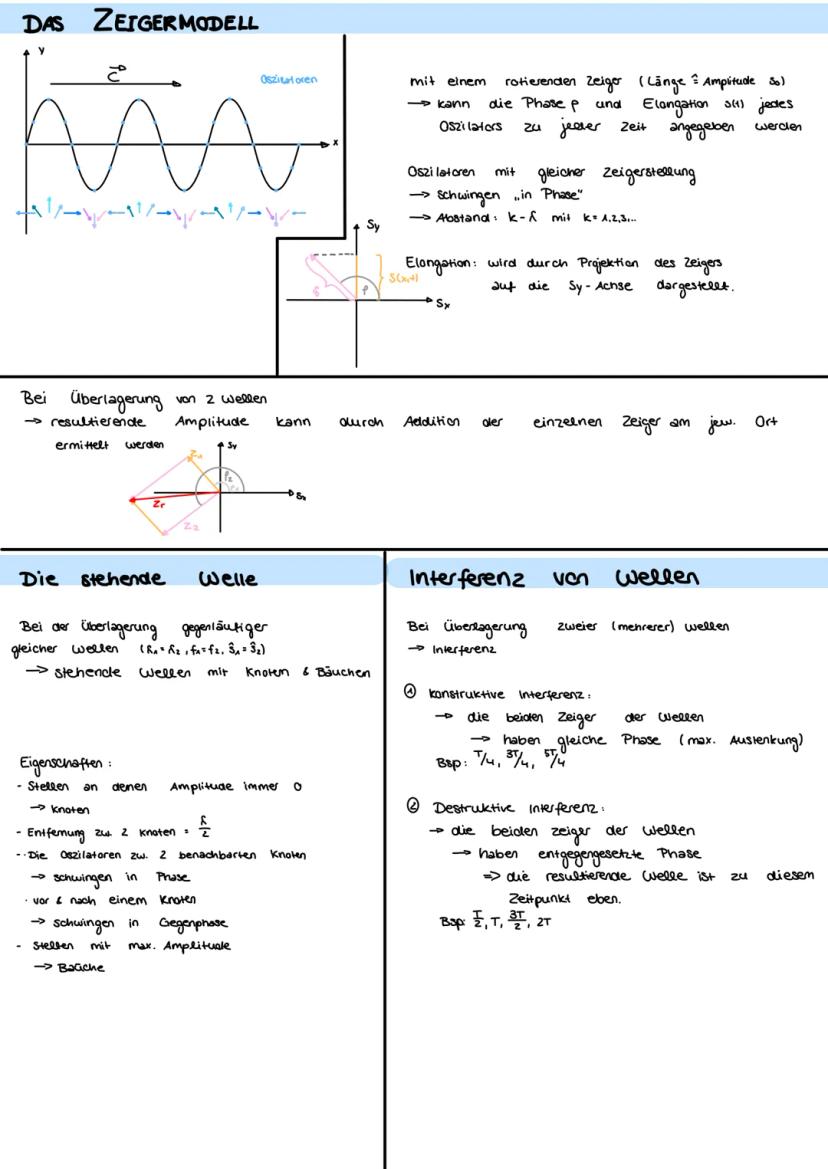 DAS ZEIGERMODELL
y
c
Oszilatoren
x
mit einem rotierenden Zeiger (Länge ≙ Amplitude s₀)
→ kann die Phase ρ und Elongation s(t) jedes
Oszilators zu jeder Zeit angegeben werden
Oszilatoren mit gleicher Zeigerstellung
→ Schwingen „in Phase"
→ Abstand: k-λ mit k=1,2,3,...
Sy
S(x,t)
ρ
Sx
Elongation: wird durch Projektion des Zeigers
auf die Sy-Achse dargestellt.
Bei Überlagerung von 2 Wellen
→ resultierende Amplitude kann durch Addition der einzelnen Zeiger am jew. Ort
ermittelt werden
Sy
Z₁
ρ₂
Sx
Zr
Z₂
Die stehende Welle
Bei der Überlagerung gegenläufiger
gleicher Wellen (λ₁=λ₂, f₁=f₂, ŝ₁=ŝ₂)
→ stehende Wellen mit Knoten & Bäuchen
Eigenschaften:
- Stellen an denen Amplitude immer 0
→ Knoten
- Entfernung zw. 2 Knoten = λ/2
-·Die Oszilatoren zw. 2 benachbarten Knoten
→ schwingen in Phase
· vor & nach einem Knoten
→ schwingen in Gegenphase
- Stellen mit max. Amplitude
→ Baüche
Interferenz von Wellen
Bei Überlagerung zweier (mehrerer) Wellen
→ Interferenz
① Konstruktive Interferenz:
→ die beiden Zeiger der Wellen
→ haben gleiche Phase (max. Auslenkung)
Bsp: T/4, 3T/4, 5T/4
② Destruktive Interferenz:
→ die beiden zeiger der Wellen
→ haben entgegengesetzte Phase
=> die resultierende Welle ist zu diesem
Zeitpunkt eben.
Bsp: T/2, T, 3T/2, 2T